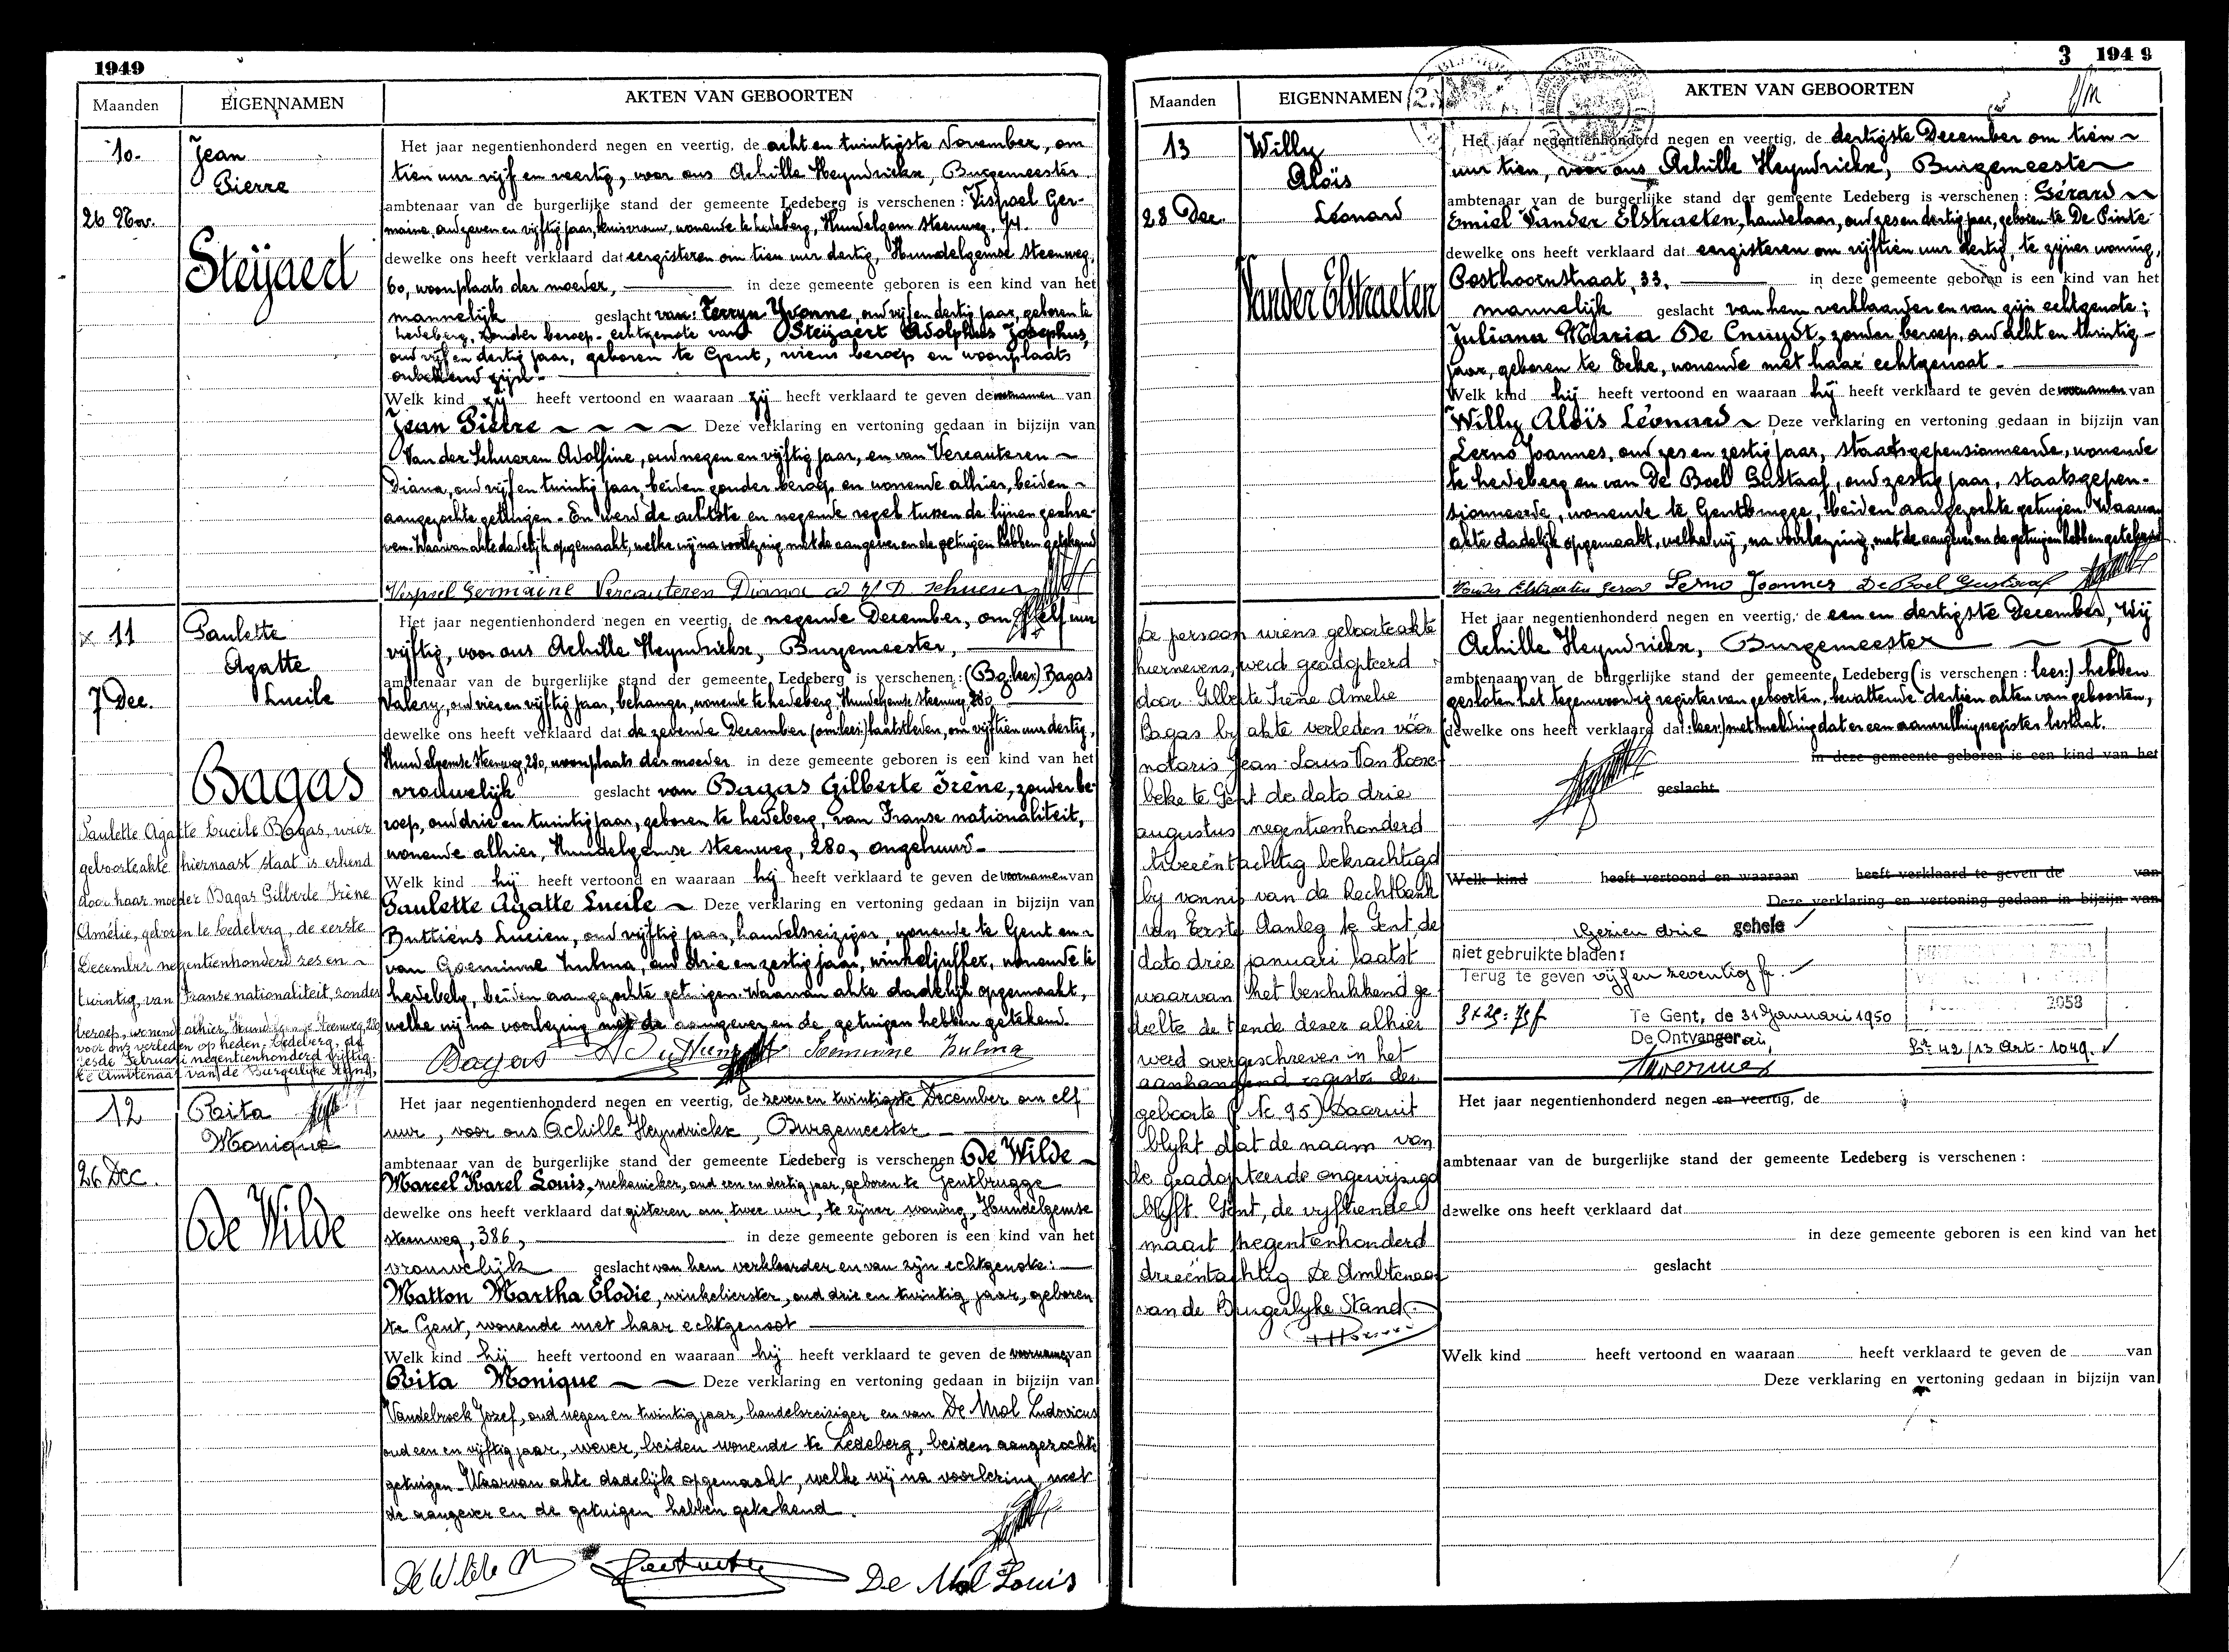 1949
Maanden EIGENNAMEN AKTEN VAN GEBOORTEN
10.
26 Nov.
Jean
Pierre
Steÿaert
Het jaar negentienhonderd negen en veertig, de acht en twintigste November, om
tien uur vijf en veertig, voor ons Achille Heyndrickx, Burgemeester
ambtenaar van de burgerlijke stand der gemeente Ledeberg is verschenen: Vispoel Ger-
maine, oud zeven en vijftig jaar, huisvrouw, wonende te Ledeberg, Hundelgem steenweg, 74.
dewelke ons heeft verklaard dat eergisteren om tien uur dertig, Hundelgemse steenweg,
60, woonplaats der moeder, in deze gemeente geboren is een kind van het
mannelijk geslacht van: Terryn Yvonne, oud vijf en dertig jaar, geboren te
Ledeberg, zonder beroep, echtgenote van Steÿaert Adolphus Josephus,
oud vijf en dertig jaar, geboren te Gent, wiens beroep en woonplaats
onbekend zijn.
Welk kind zij heeft vertoond en waaraan zij heeft verklaard te geven de voornamen van
Jean Pierre ~ ~ ~ ~ Deze verklaring en vertoning gedaan in bijzijn van
Van der Schueren Adolfine, oud negen en vijftig jaar, en van Vercauteren ~
Diana, oud vijf en twintig jaar, beiden zonder beroep en wonende alhier, beiden ~
aangezochte getuigen. En werd de achtste en negende regel tussen de lijnen geschre-
ven. Waarvan akte dadelijk opgemaakt, welke wij na voorlezing met de aangever en de getuigen hebben getekend
Vispoel Germaine Vercauteren Diana
x 11
7 Dec.
Paulette
Agatte
Lucile
Bagas
Het jaar negentienhonderd negen en veertig, de negende December, om elf uur
vijftig, voor ons Achille Heyndrickx, Burgemeester,
ambtenaar van de burgerlijke stand der gemeente Ledeberg is verschenen: (Bg: lees) Bagas
Valery, oud vier en vijftig jaar, behanger, wonende te Ledeberg, Hundelgemse steenweg, 280
dewelke ons heeft verklaard dat de zevende December (om: lees) laatstleden, om vijftien uur dertig,
Hundelgemse steenweg, 280, woonplaats der moeder in deze gemeente geboren is een kind van het
vrouwelijk geslacht van Bagas Gilberte Irène, zonder be-
roep, oud drie en twintig jaar, geboren te Ledeberg, van Franse nationaliteit,
wonende alhier, Hundelgemse steenweg, 280, ongehuwd.
Welk kind hij heeft vertoond en waaraan hij heeft verklaard te geven de voornamen van
Paulette Agatte Lucile ~ Deze verklaring en vertoning gedaan in bijzijn van
Buttiens Lucien, oud vijftig jaar, handelsreiziger, wonende te Gent en ~
van Goeminne Zulma, oud drie en zestig jaar, winkeljuffer, wonende te
Ledeberg, beiden aangezochte getuigen. Waarvan akte dadelijk opgemaakt,
welke wij na voorlezing met de aangever en de getuigen hebben getekend.
Bagas Goeminne Zulma
Paulette Agatte Lucile Bagas, wier
geboorteakte hiernaast staat is erkend
door haar moeder Bagas Gilberte Irène
Amélie, geboren te Ledeberg, de eerste
December negentienhonderd zes en ~
twintig, van Franse nationaliteit, zonder
beroep, wonend alhier, Hundelgemse Steenweg, 280
voor ons verleden op heden. Ledeberg, de
zesde Februari negentienhonderd vijftig.
De Ambtenaar van de Burgerlijke Stand,
12
26 Dec.
Rita
Monique
De Wilde
Het jaar negentienhonderd negen en veertig, de zeven en twintigste December om elf
uur, voor ons Achille Heyndrickx, Burgemeester
ambtenaar van de burgerlijke stand der gemeente Ledeberg is verschenen De Wilde ~
Marcel Karel Louis, mekanieker, oud een en dertig jaar, geboren te Gentbrugge
dewelke ons heeft verklaard dat gisteren om twee uur, te zijner woning, Hundelgemse
steenweg, 386, in deze gemeente geboren is een kind van het
vrouwelijk geslacht van hem verklaarder en van zijn echtgenote:
Matton Martha Elodie, winkelierster, oud drie en twintig jaar, geboren
te Gent, wonende met haar echtgenoot
Welk kind hij heeft vertoond en waaraan hij heeft verklaard te geven de voornamen van
Rita Monique ~ ~ Deze verklaring en vertoning gedaan in bijzijn van
Vandebroek Jozef, oud negen en twintig jaar, handelsreiziger en van De Mol Ludovicus
oud een en vijftig jaar, wever, beiden wonende te Ledeberg, beiden aangezochte
getuigen. Waarvan akte dadelijk opgemaakt, welke wij na voorlezing met
de aangever en de getuigen hebben getekend.
De Wilde M De Mol Louis
3 1949
Maanden EIGENNAMEN AKTEN VAN GEBOORTEN
13
28 Dec.
Willy
Aloïs
Léonard
Vander Elstraeten
Het jaar negentienhonderd negen en veertig, de dertigste December om tien ~
uur tien, voor ons Achille Heyndrickx, Burgemeester
ambtenaar van de burgerlijke stand der gemeente Ledeberg is verschenen: Gérard ~
Emiel Vander Elstraeten, handelaar, oud zes en dertig jaar, geboren te De Pinte
dewelke ons heeft verklaard dat eergisteren om vijftien uur dertig, te zijner woning,
Posthoornstraat, 33. in deze gemeente geboren is een kind van het
mannelijk geslacht van hem verklaarder en van zijn echtgenote;
Juliana Maria De Cnuydt, zonder beroep, oud acht en twintig
jaar, geboren te Eeke, wonende met haar echtgenoot.
Welk kind hij heeft vertoond en waaraan hij heeft verklaard te geven de voornamen van
Willy Aloïs Léonard ~ Deze verklaring en vertoning gedaan in bijzijn van
Lerno Joannes, oud zes en zestig jaar, staatsgepensionneerde, wonende
te Ledeberg en van De Boel Gustaaf, oud zestig jaar, staatsgepen-
sionneerde, wonende te Gentbrugge, beiden aangezochte getuigen. Waarvan
akte dadelijk opgemaakt, welke wij, na voorlezing, met de aangever en de getuigen hebben getekend
Vander Elstraeten Gerard Lerno Joannes De Boel Gustaaf
De persoon wiens geboorteakte
hiernevens, werd geadopteerd
door Gilberte Irène Amelie
Bagas by akte verleden vóór
notaris Jean-Louis Van Hoore-
beke te Gent de dato drie
augustus negentienhonderd
tweeëntachtig bekrachtigd
by vonnis van de Rechtbank
van Eerste Aanleg te Gent de
dato drie januari laatst
waarvan het beschikkend ge-
deelte de tiende dezer alhier
werd overgeschreven in het
aanhangend register der
geboorte (Nr 95) Daaruit
blykt dat de naam van
de geadopteerde ongewijzigd
blyft. Gent, de vyftiende
maart negentienhonderd
drieëntachtig De Ambtenaar
van de Burgerlyke Stand.
Het jaar negentienhonderd negen en veertig, de een en dertigste December, Wij
Achille Heyndrickx, Burgemeester
ambtenaar van de burgerlijke stand der gemeente Ledeberg (is verschenen: lees:) hebben
gesloten het tegenwoordig register van geboorten, bevattende dertien akten van geboorten,
(dewelke ons heeft verklaard dat: lees:) met melding dat er een aanvullingsregister bestaat.
in deze gemeente geboren is een kind van het
geslacht
Welk kind heeft vertoond en waaraan heeft verklaard te geven de van
Deze verklaring en vertoning gedaan in bijzijn van
Gezien drie gehele
niet gebruikte bladen:
Terug te geven vijf en zeventig fr.
3x25: 75 f
Te Gent, de 31 Januari 1950
De Ontvanger
2058
Bk 42/13 Art. 1049.
Het jaar negentienhonderd negen en veertig, de
ambtenaar van de burgerlijke stand der gemeente Ledeberg is verschenen:
dewelke ons heeft verklaard dat
in deze gemeente geboren is een kind van het
geslacht
Welk kind heeft vertoond en waaraan heeft verklaard te geven de van
Deze verklaring en vertoning gedaan in bijzijn van